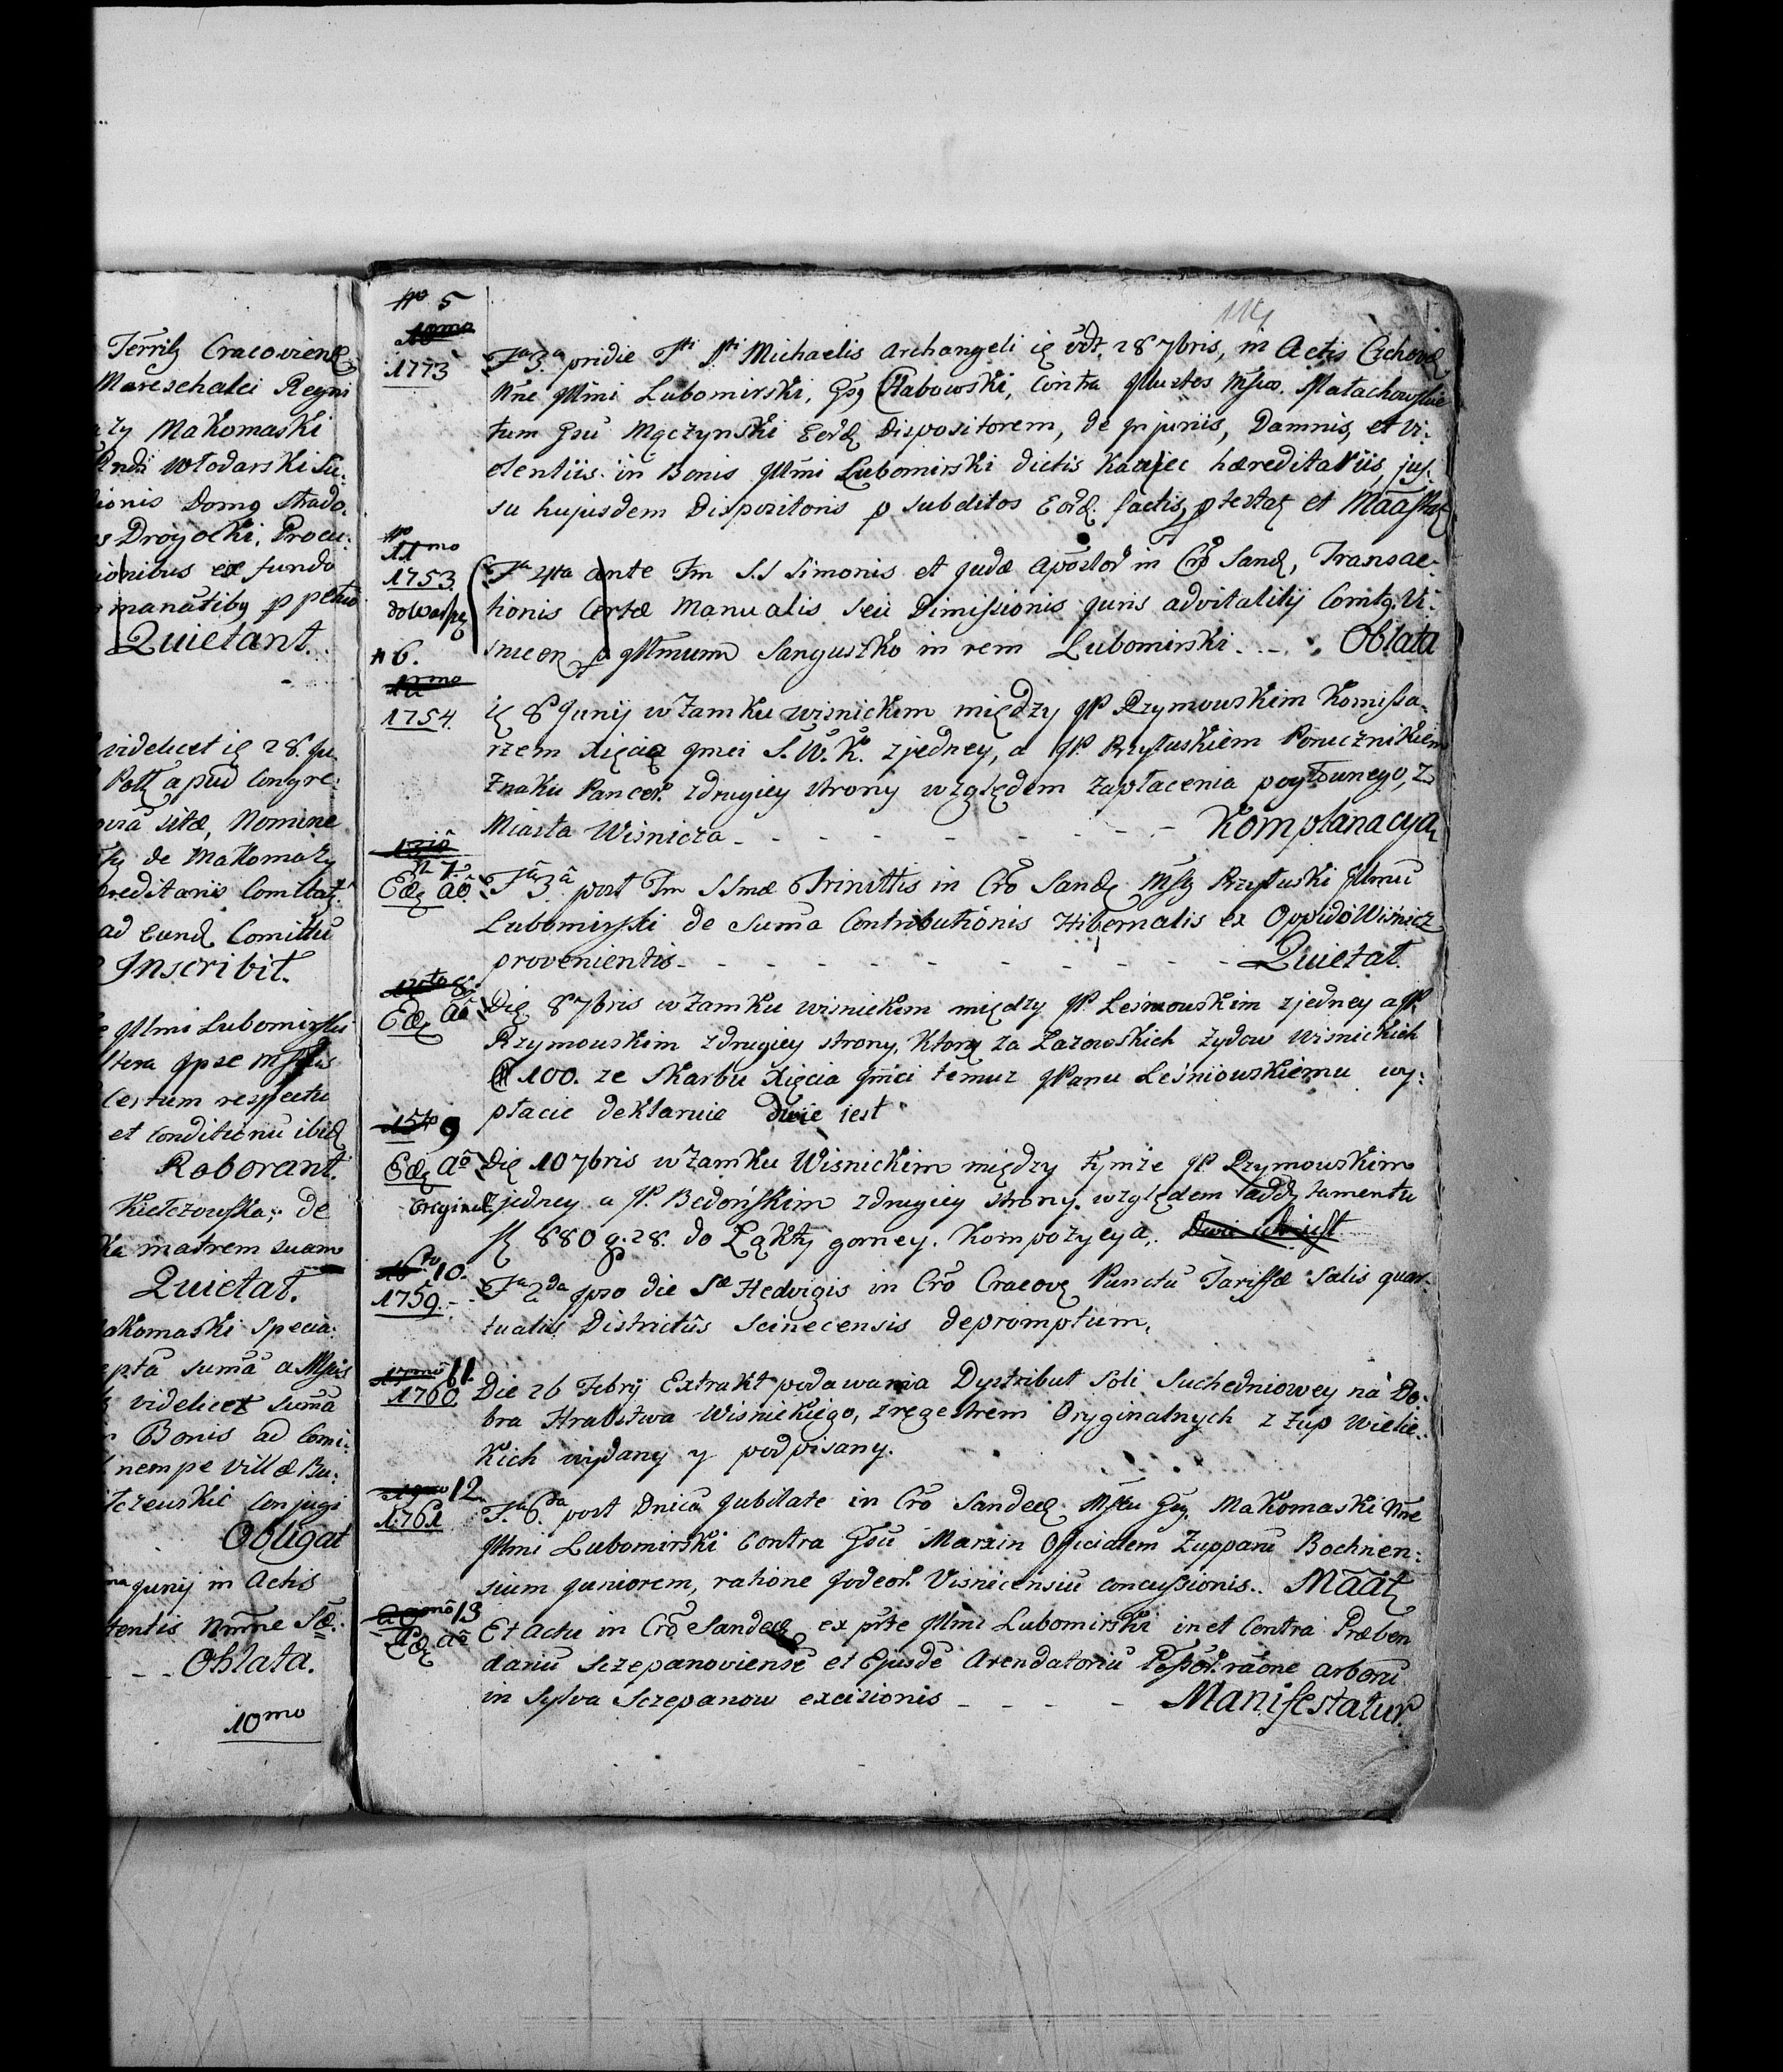 Terrilz Cracovienz
Mareschalci Regni
Makomaski
Włodarski Su:
ionis Domg Strado.
Droijocki, Procu:
ionibus ex fundo
manatibg p petuo
Quietant.
videlicet iz 28. Ju
Poll apud Congre:
sitæ, Nomine
de Makomazy
reditariis Comitat:
ad eund Comittu
Inscribit.
Illmi Lubomirski
tera Ipse
certum respectu
et conditionu ibid
Roborant.
Kiełczowska; de
ka matrem suam
Quietat.
akomaski specia:
epta suma a
videlicet suma
Bonis ad Comi:
nempe Villæ Bu:
iczewskie Conjugi
Obligat
Junij in Actis
tentis Nomne Sæ:
Oblata.
10mo
No 5
10mo
1773 Fa 3a pridie Fti Sti Michaelis Archangeli iz vdt. 28 7bris, in Actis Czchoviæ
Nne Illmi Lubomirski, Gsg Chabowski, contra Illustes Małachowskie
tum Gsu Mączynski Eorz Dispositorem, de Injuriis, Damnis, et Vi:
olentiis in Bonis Illmi Lubomirski dictis hæreditariis, jus:
su hujusdem Dispozitoris p subditos Eorz factis, ptestaz et Maastaz
No
11mo
1753 Fa 4ta ante Fm S.S Simonis et Judæ Apostor in Cro Sanz, Transac-
tionis Certæ Manualis seu Dimissionis Juris advitalitij Comitg. Vi:
# 6. snicen p Illmum Sanguszko in rem Lubomirski - - - Oblata
12mo
1754. iz 8 Junij w Zamku wisnickim między JP Rzymowskim Komissa-
rzem Xięcia Jmci S.W.K. zjedney, a JP. Przyłuskiem Porucznikiem
Znaku Pancer. zdrugiey strony względem zapłacenia pogłownego, z
Miasta Wisnicza - - - - - - Komplanacya
13tio
N 7.
Edz ao. Fa 3a post Fm SSmæ Trinittis in Cro Sanz Przyłuski Illmu
Lubomirski de Suma Contributionis Hibernalis ex Oppido Wisnicz
provenientis - - - - - - - - Quietat.
14to 8.
Edz ao. Diz 8 7bris w Zamku wisnickim między JP. Leśniowskim zjedney a JP.
Rzymowskim zdrugiey strony, ktory za Łazowskich żydow wisnickich
# 100. ze skarbu Xięcia Jmci temuz JPanu Leśniowskiemu wy:
płacic deklaruie dwie iest
15to 9
Edz ao Diz 10 7bris w Zamku Wisnickim między tymże JP Rzymowskim
Originał zjedney a JP. Bedońskim zdrugiey strony. względem
880 g. 28. do Łąkty gorney. Kompozycya.
16to 10.
1759. - Fa 2da Ipso die Sæ Hedvigis in Cro Cracovz Punctu Tariffæ Salis quar-
tualis Districtus Scinecensis depromptum.
17mo 11.
1760. Die 26 Febrij Extrakt podawania Dystribut Soli Suchedniowey na Do:
bra Hrabstwa Wisnickiego, zregestrem Oryginalnych z Zup Wielic:
kich wydany y podpisany.
12
1761 Fa 6ta post Dnica Jubilate in Cro Sandecz Gsg. Makomaski Nne
Illmi Lubomirski Contra Gsu Marxin Officialem Zuppanu Bochnen:
sium Juniorem, ratione Judeor. Visnicensiu concussionis. Maatz
13
Edz ao Et Actu in Cro Sandecz ex pte Illmi Lubomirski in et contra Præben
dariu Sczepanoviense et Ejusde Arendatoriu Possor. raone arboru
in Sylva Sczepanow excisionis - - - - Manifestatur.